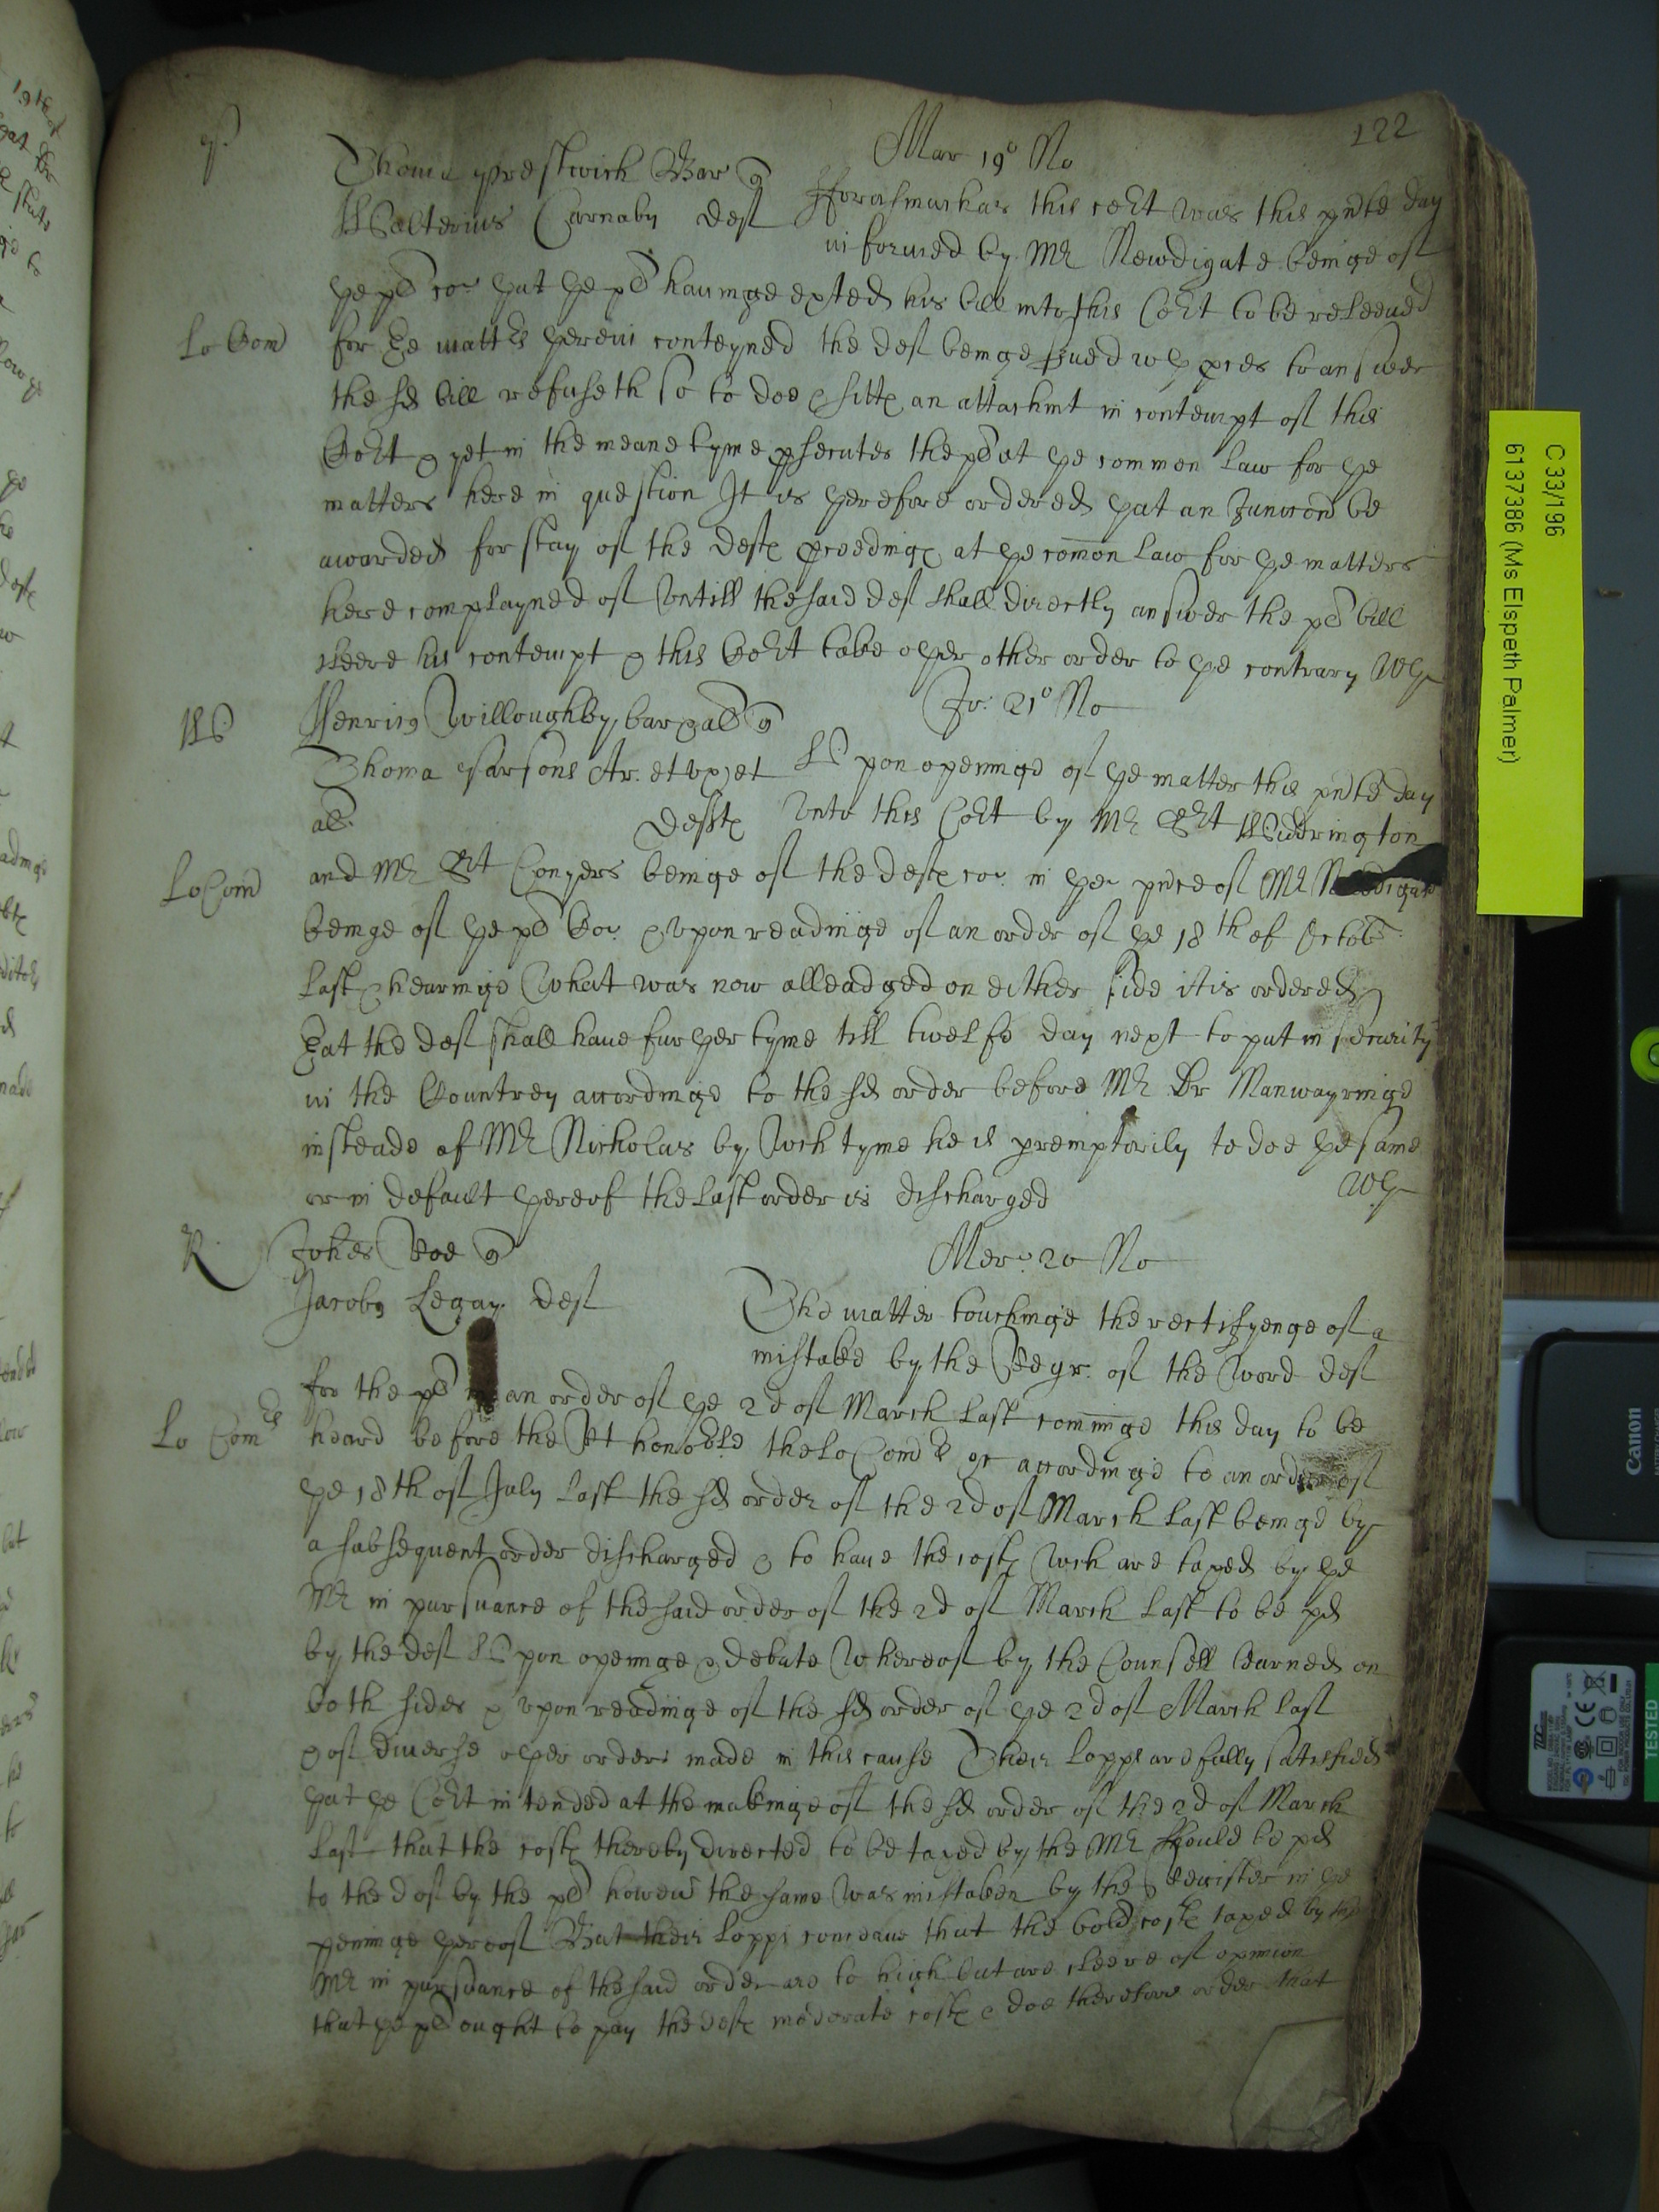 122
P
Mar 19° No
Thoma Prestwich Bar q
Walterius Carnaby Deft
fforasmuchas this Co:rt was this pn̄te day
informed by Mr Newdigate beinge of
ye plt co:r yat ye plt haueinge exted his bill into this Co:rt to be releeued
Lo Com
for ye matters yerein conteyned the deft beinge serued wth pces to answer
the sd bill refuseth so to doe & sitts an attachmt in contempt of this
Co:rt & yet in the meane tyme psecutes the plt at ye common law for ye
matters here in question It is yerefore ordered yat an Juncc̄on be
awarded for stay of the defts pceedings at ye com̄on law for ye matters
here complayned of Vntill the said deft shall directly answer the plts bill
cleere his contempt & this Co:rt take oyer other order to ye contrary WG
W
Jo: 21° No
Henric9 Willoughby bar & al q
Thoma Parsons Ar. et vx et
al. Deftes
Vpon openinge of ye matter this pn̄te day
Vnto this Co:rt by Mr Srt Widdrington
LoCom
and Mr Srt Conyers beinge of the defts co:r in ye pn̄ce of Mr Newdigate
beinge of ye plt Co:r & vpon readinge of an order of ye 18th of Octob:
last & hearinge what was now alleadged on either side it is ordered
yat the deft shall haue furyer tyme till twelfe day next to put in security
in the Countrey accordinge to the sd order before Mr Dr Manwayringe
insteade of Mr Nicholas by wch tyme he is premptorily to doe ye same
or in default yereof the last order is discharged WG
R
Mer: 20 No
Johes Roe q
Jacob9 Legay Deft
The matter touchinge the rectifyenge of a
mistake by the Regr. of the word deft
for the plt in an order of ye 2d of March last comminge this day to be
Lo Com:rs
heard before the Rt honoble the Lo Com:rs accordinge to an order of
ye 18th of July last the sd order of the 2d of March last beinge by
a subsequent order discharged & to haue the costs wch are taxed by ye
Mr in pursuance of the said order of the 2d of March last to be pd
by the deft Vpon openinge & debate whereof by the Counsell learned on
both sides & vpon readinge of the sd order of ye 2d of March last
& of diuerse oyer orders made in this cause Their Lopps are fully satisfied
yat ye Co:rt intended at the makinge of the sd order of the 2d of March
last that the costs thereby directed to be taxed by the Mr should be pd
to the deft by the plt howeu the same was mistaken by the Register in ye
peninge yereof But their Lopps conceaue that the costs taxed by the
Mr in pursuance of the said order are to high but are cleere of opinion
that ye plt ought to pay the defts moderate costs & doe therefore order that
C 33/196
6137386 (Ms Elspeth Palmer)
Canon
TESTED